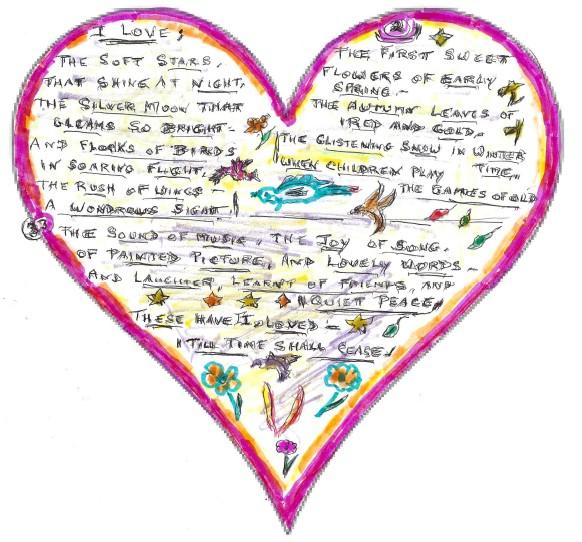 I LOVE:
THE SOFT STARS,
THAT SHINE AT NIGHT,
THE SILVER MOON THAT
GLEAMS SO BRIGHT -
AND FLOCKS OF BIRDS
IN SOARING FLIGHT,
THE RUSH OF WINGS -
A WONDROUS SIGHT!
THE FIRST SWEET
FLOWERS OF EARLY
SPRING -
THE AUTUMN LEAVES OF
RED AND GOLD -
THE GLISTENING SNOW IN WINTER
TIME -
WHEN CHILDREN PLAY
THE GAMES OF OLD
THE SOUND OF MUSIC, THE JOY OF SONG,
OF PAINTED PICTURE, AND LOVELY WORDS -
AND LAUGHTER, LEARNT OF FRIENDS, AND
QUIET PEACE,
THESE HAVE I LOVED -
TILL TIME SHALL CEASE!